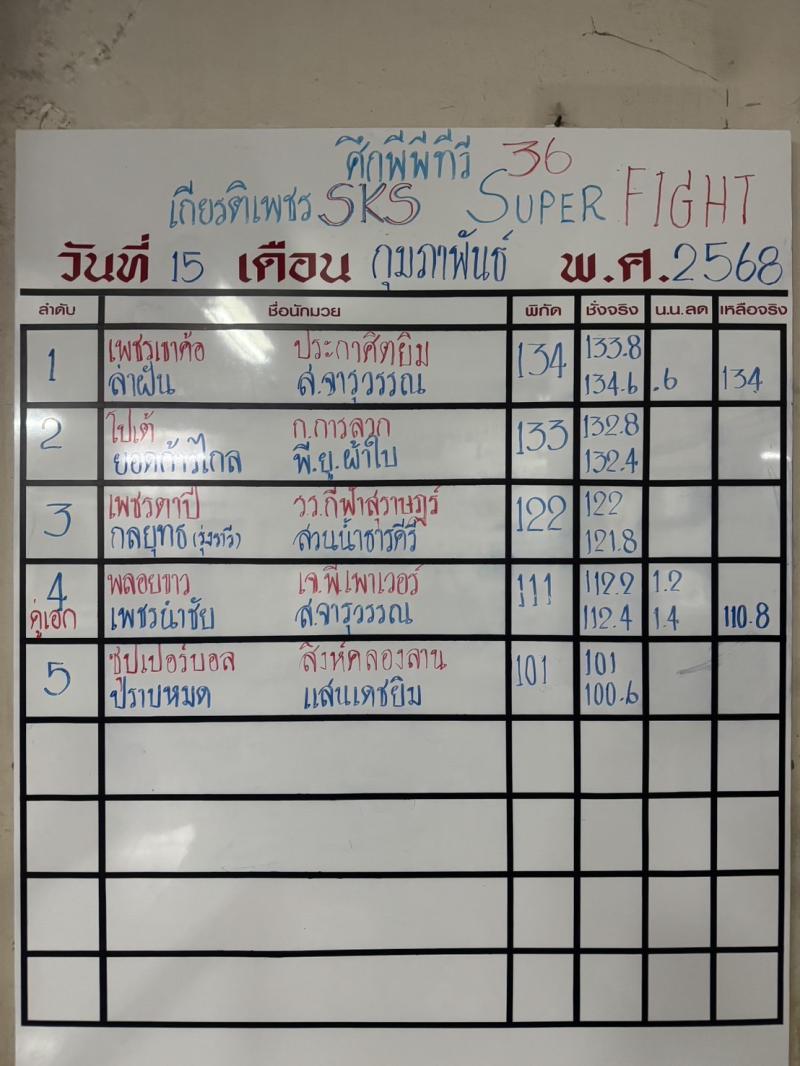 ศึกพีพีทีวี 36
เกียรติเพชร SKS SUPER FIGHT
วันที่ 15 เดือน กุมภาพันธ์ พ.ศ.2568
ลำดับ ชื่อนักมวย พิกัด ชั่งจริง น.น.ลด เหลือจริง
1 เพชรเขาค้อ ประกาศิตยิม 134 133.8
ล่าฝัน ส.จารุวรรณ 134.6 .6 134
2 โปเต้ ก.การลวก 133 132.8
ยอดก้าวไกล พี.ยู.ผ้าใบ 132.4
3 เพชรตาปี วร.กี่ฟ้าสุราษฎร์ 122 122
กลยุทธ สวนน้ำธารคีรี 121.8
4 พลอยขาว เจ.พี.เพาเวอร์ 111 112.2 1.2
คู่เอก เพชรนำชัย ส.จารุวรรณ 112.4 1.4 110.8
5 ซุปเปอร์บอล สิงห์คลองลาน 101 101
ปราบหมด แสนเดชยิม 100.6